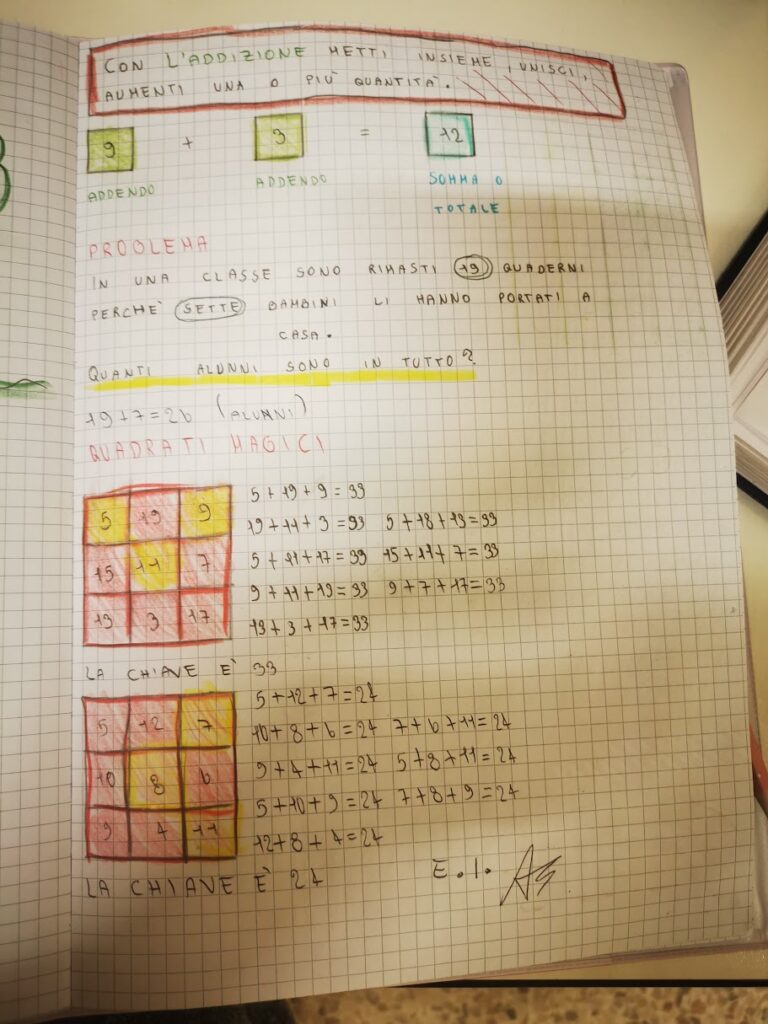 CON L'ADDIZIONE METTI INSIEME, UNISCI,
AUMENTI UNA O PIÙ QUANTITÀ.
9 + 3 = 12
ADDENDO ADDENDO SOMMA O
TOTALE
PROBLEMA
IN UNA CLASSE SONO RIMASTI 19 QUADERNI
PERCHÈ SETTE BAMBINI LI HANNO PORTATI A
CASA.
QUANTI ALUNNI SONO IN TUTTO?
19+7=26 (ALUNNI)
QUADRATI MAGICI
5 19 9
15 11 7
13 3 17
5+19+9=33
19+11+3=33 5+15+13=33
5+11+17=33 15+11+7=33
9+11+13=33 9+7+17=33
13+3+17=33
LA CHIAVE È 33
5 12 7
10 8 6
9 4 11
5+12+7=24
10+8+6=24 7+6+11=24
9+4+11=24 5+8+11=24
5+10+9=24 7+8+9=24
12+8+4=24
LA CHIAVE È 24
E.I.